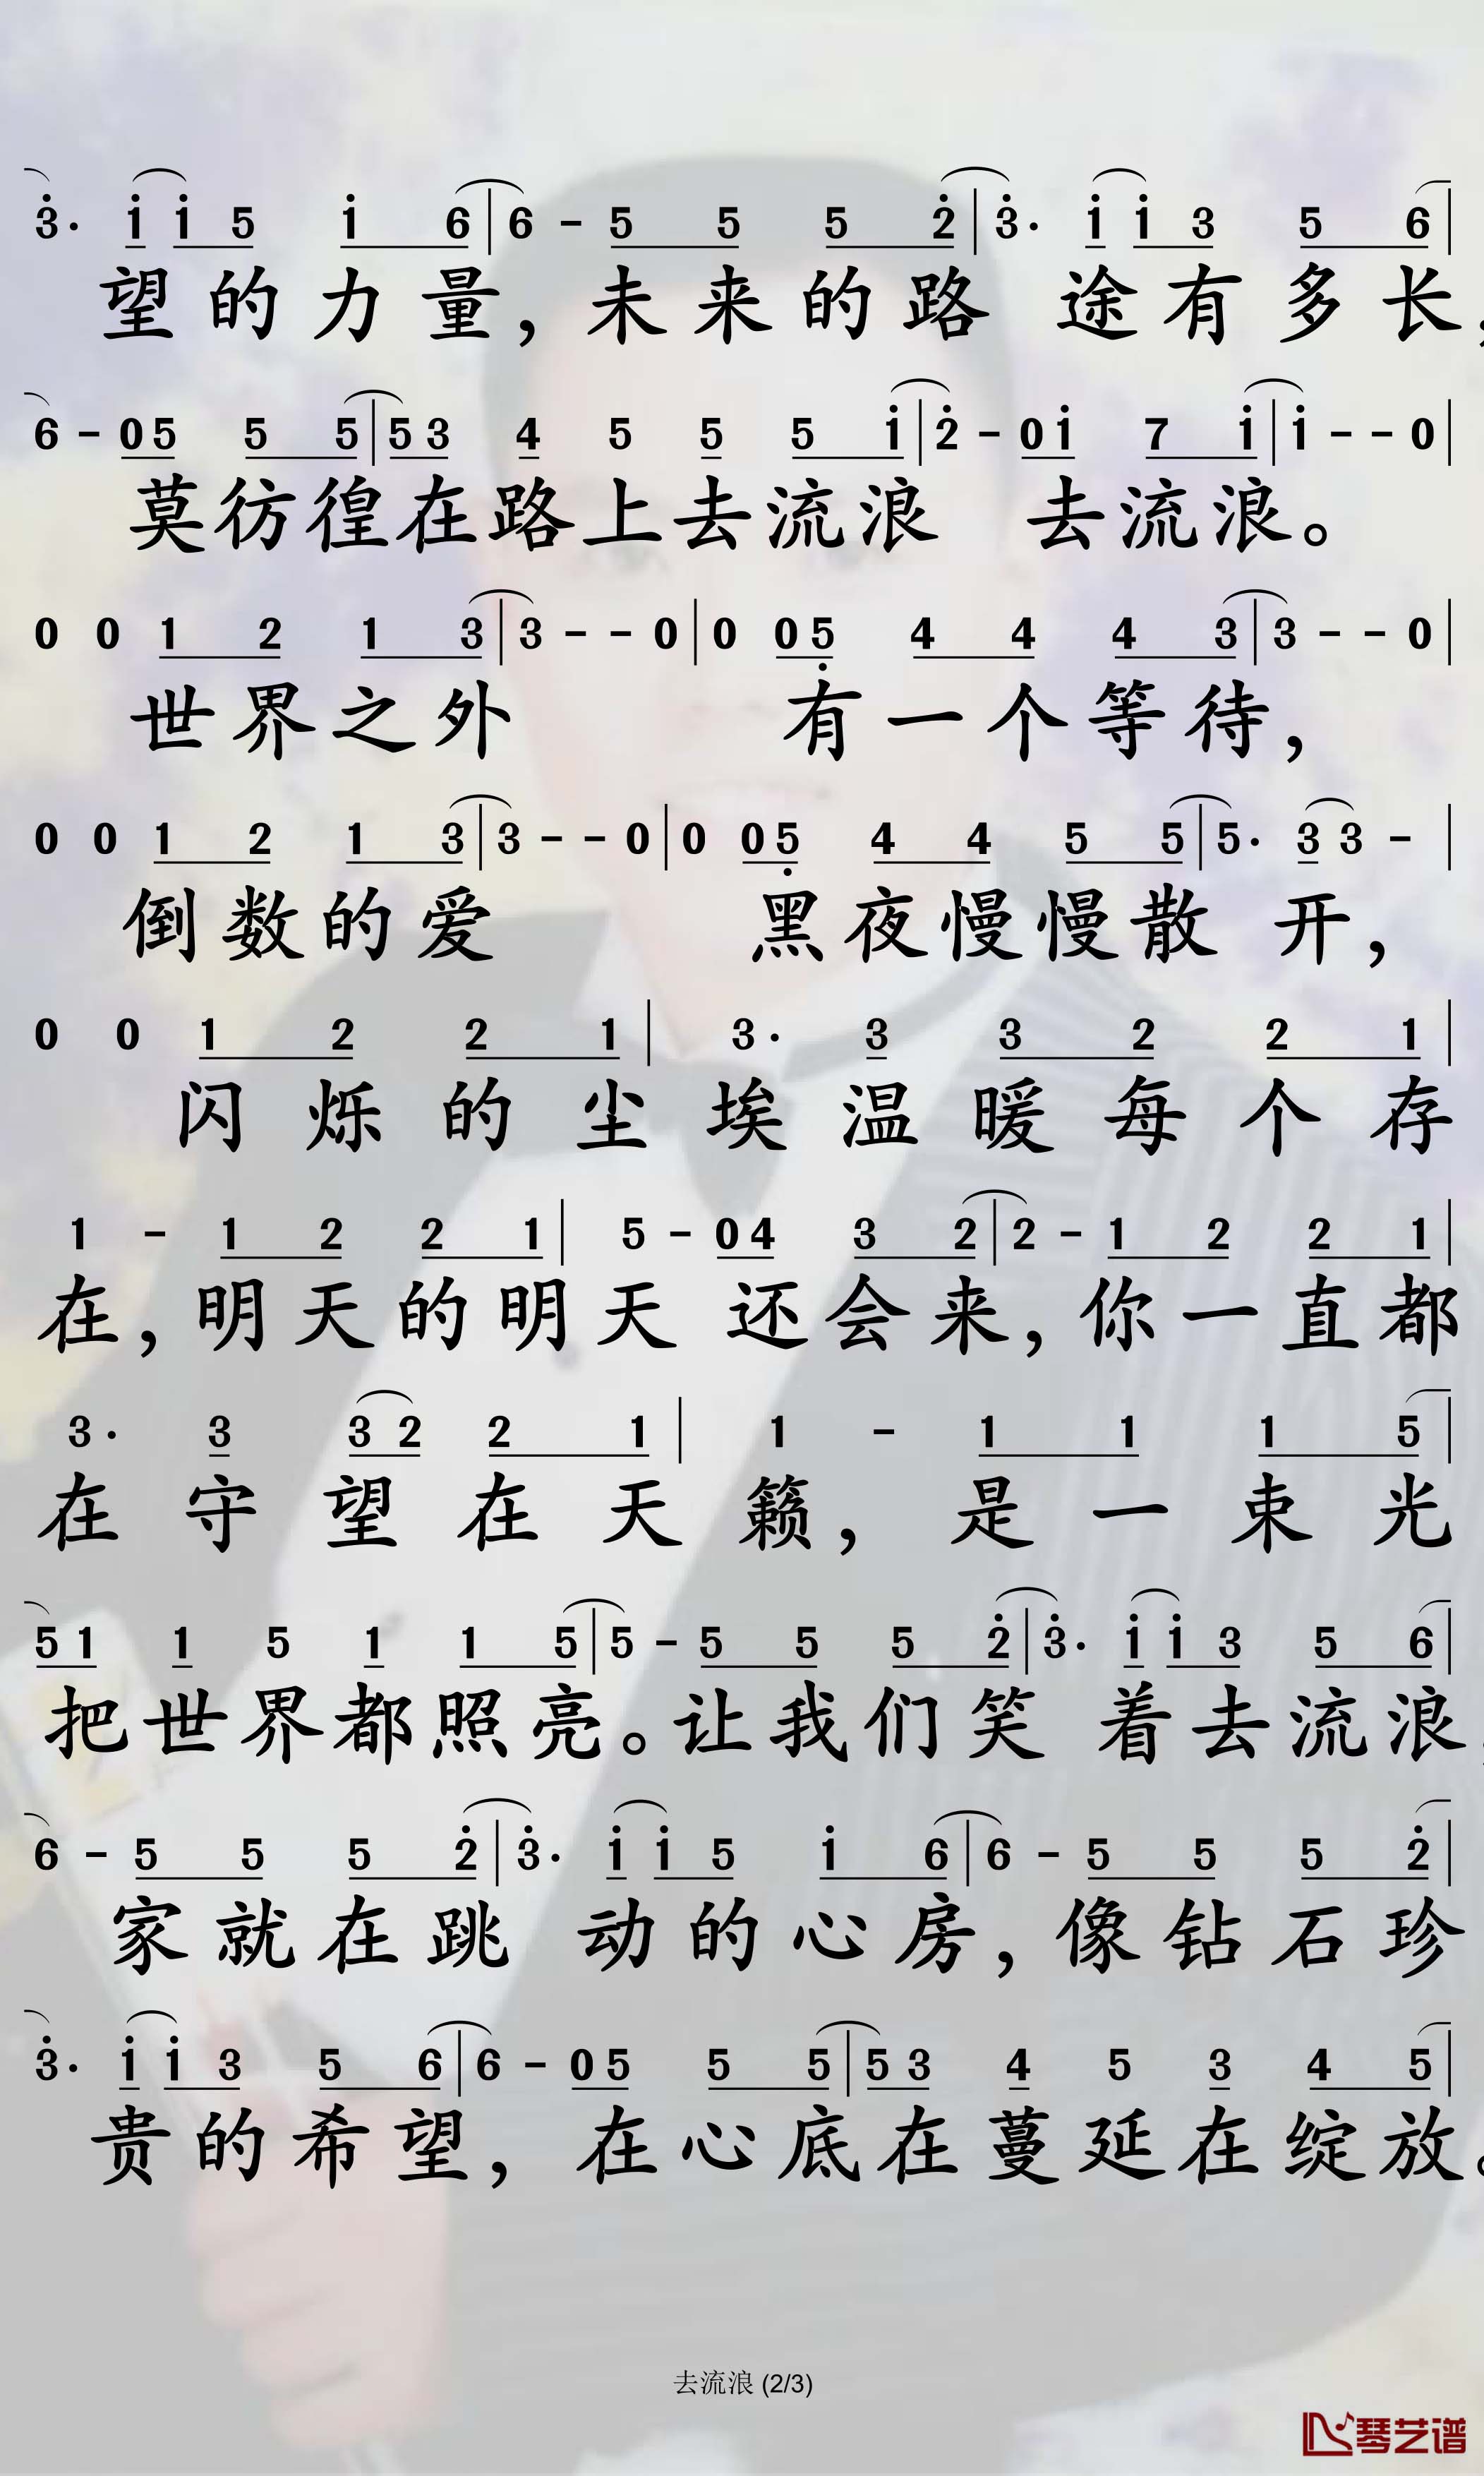 3̇· i̇ i̇ 5 i̇ 6 | 6 - 5 5 5 2̇ | 3̇· i̇ i̇ 3 5 6 |
望的力量，未来的路 途有多长，
6 - 0 5 5 5 | 5 3 4 5 5 5 i̇ | 2̇ - 0 i̇ 7 i̇ | i̇ - - 0 |
莫彷徨在路上去流浪 去流浪。
0 0 1 2 1 3 | 3 - - 0 | 0 0 5̣ 4 4 4 3 | 3 - - 0 |
世界之外 有一个等待，
0 0 1 2 1 3 | 3 - - 0 | 0 0 5̣ 4 4 5 5 | 5· 3 3 - |
倒数的爱 黑夜慢慢散 开，
0 0 1 2 2 1 | 3· 3 3 2 2 1 |
闪烁的尘埃温暖每个存
1 - 1 2 2 1 | 5 - 0 4 3 2 | 2 - 1 2 2 1 |
在，明天的明天 还会来，你一直都
3· 3 3 2 2 1 | 1 - 1 1 1 5 |
在守望在天籁，是一束光
5 1 1 5 1 1 5 | 5 - 5 5 5 2̇ | 3̇· i̇ i̇ 3 5 6 |
把世界都照亮。让我们笑 着去流浪，
6 - 5 5 5 2̇ | 3̇· i̇ i̇ 5 i̇ 6 | 6 - 5 5 5 2̇ |
家就在跳 动的心房，像钻石珍
3̇· i̇ i̇ 3 5 6 | 6 - 0 5 5 5 | 5 3 4 5 3 4 5 |
贵的希望，在心底在蔓延在绽放。
去流浪 (2/3)
琴艺谱